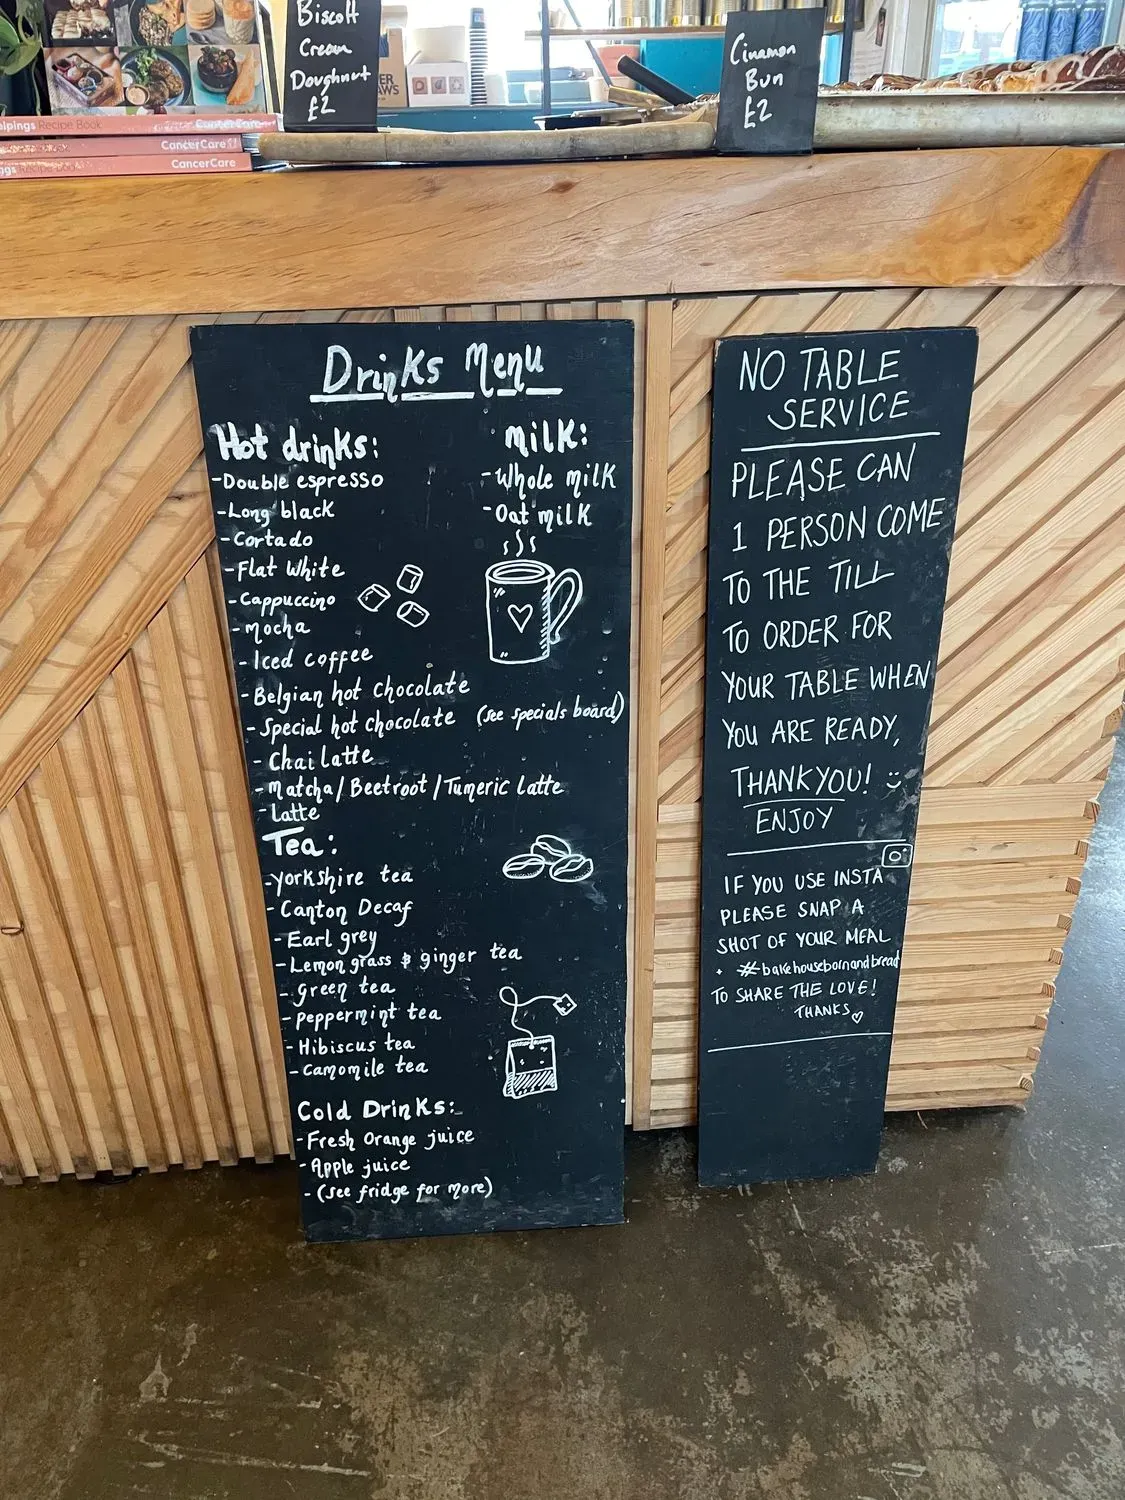 Biscoff
Cream
Doughnut
£2
Cinamon
Bun
£2
elpings Recipe Book CancerCare
CancerCare
ngs Recipe Book CancerCare
Drinks Menu
Hot drinks:
-Double espresso
-Long black
-Cortado
-Flat White
-Cappuccino
-mocha
-Iced coffee
-Belgian hot chocolate
-Special hot chocolate (see specials board)
-Chai latte
-Matcha/Beetroot/Tumeric latte
-Latte
Milk:
-Whole milk
-Oat milk
Tea:
-Yorkshire tea
-Canton Decaf
-Earl grey
-Lemon grass & ginger tea
-green tea
-peppermint tea
-Hibiscus tea
-Camomile tea
Cold Drinks:
-Fresh Orange juice
-Apple juice
-(see fridge for more)
NO TABLE
SERVICE
PLEASE CAN
1 PERSON COME
TO THE TILL
TO ORDER FOR
YOUR TABLE WHEN
YOU ARE READY,
THANKYOU! :)
ENJOY
IF YOU USE INSTA
PLEASE SNAP A
SHOT OF YOUR MEAL
+ #bakehousebornandbread
TO SHARE THE LOVE!
THANKS ♡